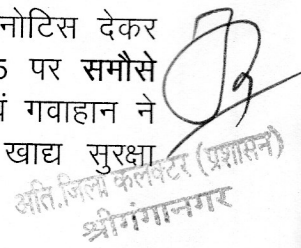 नोटिस देकर
पर समौसे
गवाहान ने
खाद्य सुरक्षा
अति.जिला कलक्टर (प्रशासन)
श्रीगंगानगर